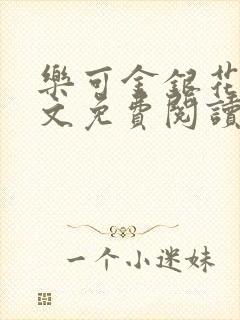 樂可金銀花
文免費閱讀
一个小迷妹